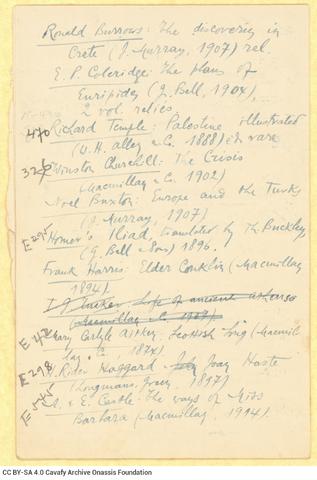 Ronald Burrows: The discoveries in
Crete (J. Murray, 1907) rel.
E. P. Coleridge: The plays of
Euripides (G. Bell, 1904),
2 vol. relics.
470 Richard Temple: Palestine illustrated
(W. H. Allen & Co. 1888) éd. rare
326 Winston Churchill: The Crisis
(Macmillan & Co. 1902)
Noel Buxton: Europe and the Turks
(J. Murray, 1907)
E 295 Homer's Iliad, translated by Th. Buckley
(G. Bell & Sons) 1896.
Frank Harris: Elder Conklin (Macmillan
1894).
T. G. Tucker Life of ancient Athens
(Macmillan & Co. 1907)
E 42 Mary Carlyle Aitken: Scottish Song (Macmil
lan & C., 1874)
E 298 H. Rider Haggard Joan Haste
(Longmans, Green, 1897)
E 545 A. & E. Castle: The ways of Miss
Barbara (Macmillan, 1914).
CC BY-SA 4.0 Cavafy Archive Onassis Foundation